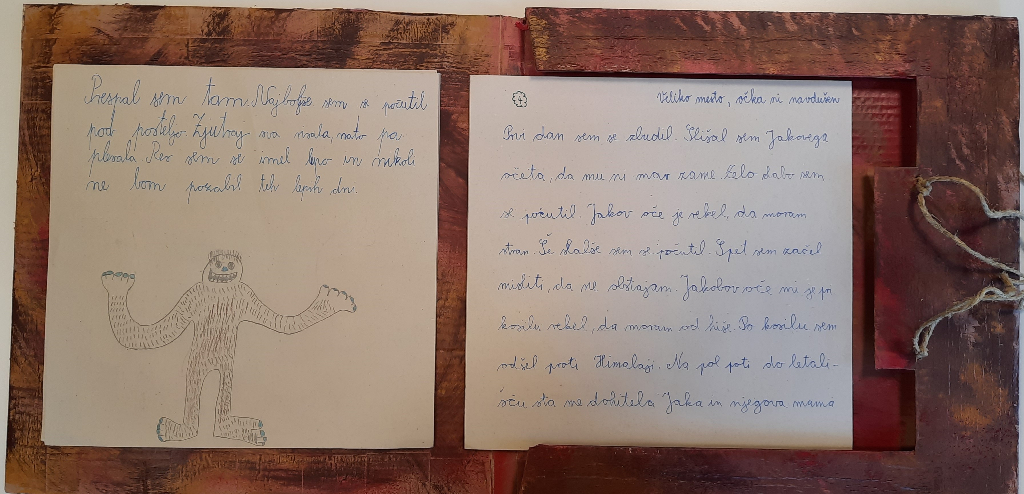 Prespal sem tam. Najboljše sem se počutil
pod posteljo. Zjutraj sva vstala, nato pa
plesala. Res sem se imel lepo in nikoli
ne bom pozabil teh lepih dni.
Veliko mesto, očka ni navdušen
Prvi dan sem se zbudil. Slišal sem Jakovega
očeta, da mu ni mar zame. Zelo slabo sem
se počutil. Jakov oče je rekel, da moram
stran. Še slabše sem se počutil. Spet sem začel
misliti, da ne obstajam. Jakobov oče mi je po
kosilu rekel, da moram od hiše. Po kosilu sem
odšel proti Himalaji. Na pol poti do letali-
šču sta me dohitela Jaka in njegova mama